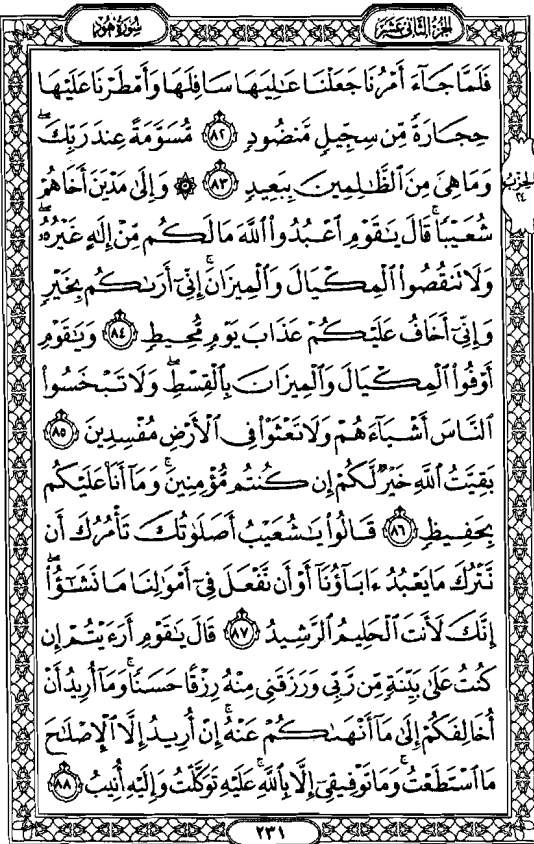 الجزء الثاني عشر
سورة هود
فَلَمَّا جَآءَ أَمْرُنَا جَعَلْنَا عَٰلِيَهَا سَافِلَهَا وَأَمْطَرْنَا عَلَيْهَا
حِجَارَةً مِّن سِجِّيلٍ مَّنضُودٍ ٨٢ مُّسَوَّمَةً عِندَ رَبِّكَۖ
وَمَا هِىَ مِنَ ٱلظَّٰلِمِينَ بِبَعِيدٍ ٨٣ ۞ وَإِلَىٰ مَدْيَنَ أَخَاهُمْ
الحزب ٢٤
شُعَيْبًاۚ قَالَ يَٰقَوْمِ ٱعْبُدُوا۟ ٱللَّهَ مَا لَكُم مِّنْ إِلَٰهٍ غَيْرُهُۥۖ
وَلَا تَنقُصُوا۟ ٱلْمِكْيَالَ وَٱلْمِيزَانَۚ إِنِّىٓ أَرَىٰكُم بِخَيْرٍ
وَإِنِّىٓ أَخَافُ عَلَيْكُمْ عَذَابَ يَوْمٍ مُّحِيطٍ ٨٤ وَيَٰقَوْمِ
أَوْفُوا۟ ٱلْمِكْيَالَ وَٱلْمِيزَانَ بِٱلْقِسْطِۖ وَلَا تَبْخَسُوا۟
ٱلنَّاسَ أَشْيَآءَهُمْ وَلَا تَعْثَوْا۟ فِى ٱلْأَرْضِ مُفْسِدِينَ ٨٥
بَقِيَّتُ ٱللَّهِ خَيْرٌ لَّكُمْ إِن كُنتُم مُّؤْمِنِينَۚ وَمَآ أَنَا۠ عَلَيْكُم
بِحَفِيظٍ ٨٦ قَالُوا۟ يَٰشُعَيْبُ أَصَلَوٰتُكَ تَأْمُرُكَ أَن
نَّتْرُكَ مَا يَعْبُدُ ءَابَآؤُنَآ أَوْ أَن نَّفْعَلَ فِىٓ أَمْوَٰلِنَا مَا نَشَٰٓؤُا۟ۖ
إِنَّكَ لَأَنتَ ٱلْحَلِيمُ ٱلرَّشِيدُ ٨٧ قَالَ يَٰقَوْمِ أَرَءَيْتُمْ إِن
كُنتُ عَلَىٰ بَيِّنَةٍ مِّن رَّبِّى وَرَزَقَنِى مِنْهُ رِزْقًا حَسَنًاۚ وَمَآ أُرِيدُ أَنْ
أُخَالِفَكُمْ إِلَىٰ مَآ أَنْهَىٰكُمْ عَنْهُۚ إِنْ أُرِيدُ إِلَّا ٱلْإِصْلَٰحَ
مَا ٱسْتَطَعْتُۚ وَمَا تَوْفِيقِىٓ إِلَّا بِٱللَّهِۚ عَلَيْهِ تَوَكَّلْتُ وَإِلَيْهِ أُنِيبُ ٨٨
٢٣١